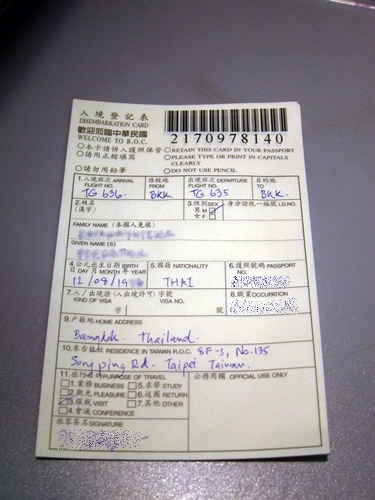 入境登記表
DISEMBARKATION CARD
歡迎蒞臨中華民國
WELCOME TO R.O.C.
2170978140
○本卡請併入護照保管 ○RETAIN THIS CARD IN YOUR PASSPORT
○請用正楷填寫 ○PLEASE TYPE OR PRINT IN CAPITALS CLEARLY
○請勿用鉛筆 ○DO NOT USE PENCIL
1.入境班次 ARRIVAL FLIGHT NO. TG 636. 啓程地 FROM BKK 出境班次 DEPARTURE FLIGHT NO. TG 635 目的地 TO BKK.
2.姓名 (漢字) 3.性別 SEX 男 M 女 F 身份證統一編號 I.D.NO.
FAMILY NAME (本國人免填)
GIVEN NAME(S)
4.公元出生日期 BIRTH 日 DAY 月 MONTH 年 YEAR 12 /08/19 5.國籍 NATIONALITY THAI 6.護照號碼 PASSPORT NO.
7.入/出境證(入出境許可)字號 KIND OF VISA VISA NO. 字 號 8.職業 OCCUPATION
9.戶籍地 HOME ADDRESS
Bangkok. Thailand.
10.來台住址 RESIDENCE IN TAIWAN R.O.C. 8F-3, No.135
Song ping Rd. Taipei Taiwan.
11.旅行目的 PURPOSE OF TRAVEL 公務欄用 OFFICIAL USE ONLY
1.業務 BUSINESS 5.求學 STUDY
2.觀光 PLEASURE 6.返國 RETURN
3.探親 VISIT 7.其他 OTHER
4.會議 CONFERENCE
旅客簽名 SIGNATURE